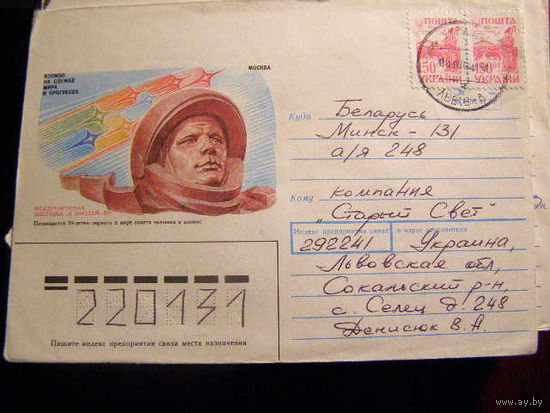 КОСМОС
НА СЛУЖБЕ
МИРА
И ПРОГРЕССА
МОСКВА
ПОШТА ПОШТА
150 150
УКРАЇНИ УКРАЇНИ
Куда Беларусь
Минск-131
а/я 248
Кому компания
"Старый Свет"
МЕЖДУНАРОДНАЯ
ВЫСТАВКА
Посвящается 30-летию первого в мире полета человека в космос
Индекс предприятия связи и адрес отправителя
292241 Украина,
Львовская обл,
Сокальский р-н,
с. Селец д. 248
Денисюк В.А.
220131
Пишите индекс предприятия связи места назначения
www.ay.by